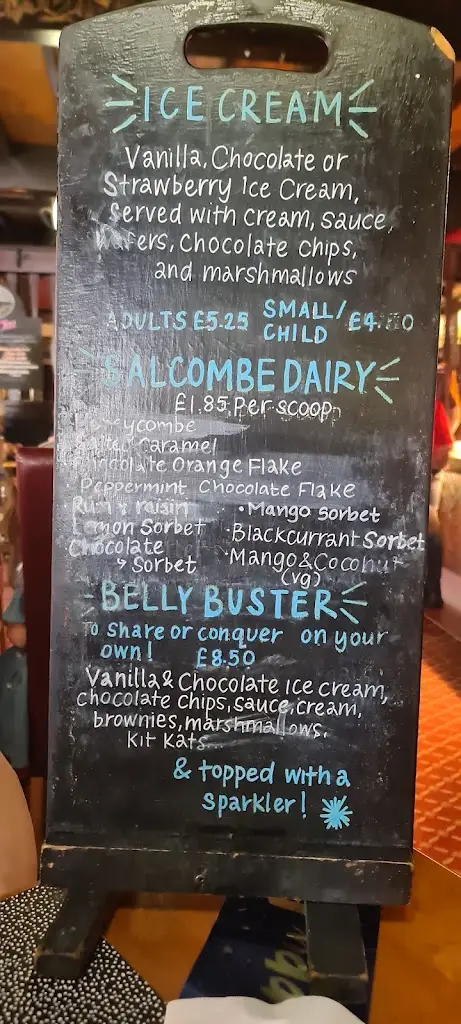 ICE CREAM
Vanilla, Chocolate or
Strawberry Ice Cream,
Served with cream, sauce,
Wafers, Chocolate chips,
and marshmallows
ADULTS £5.25 SMALL/ CHILD
SALCOMBE DAIRY
£1.85 Per scoop
Salted Caramel
Chocolate Orange Flake
Peppermint Chocolate Flake
Rum & raisin • Mango Sorbet
Lemon Sorbet • Blackcurrant Sorbet
Chocolate Sorbet • Mango & Coconut
(vg)
BELLY BUSTER
To Share or conquer on your
own! £8.50
Vanilla & Chocolate Ice cream,
chocolate chips, sauce, cream,
brownies, marshmallows,
Kit Kats
& topped with a
Sparkler!